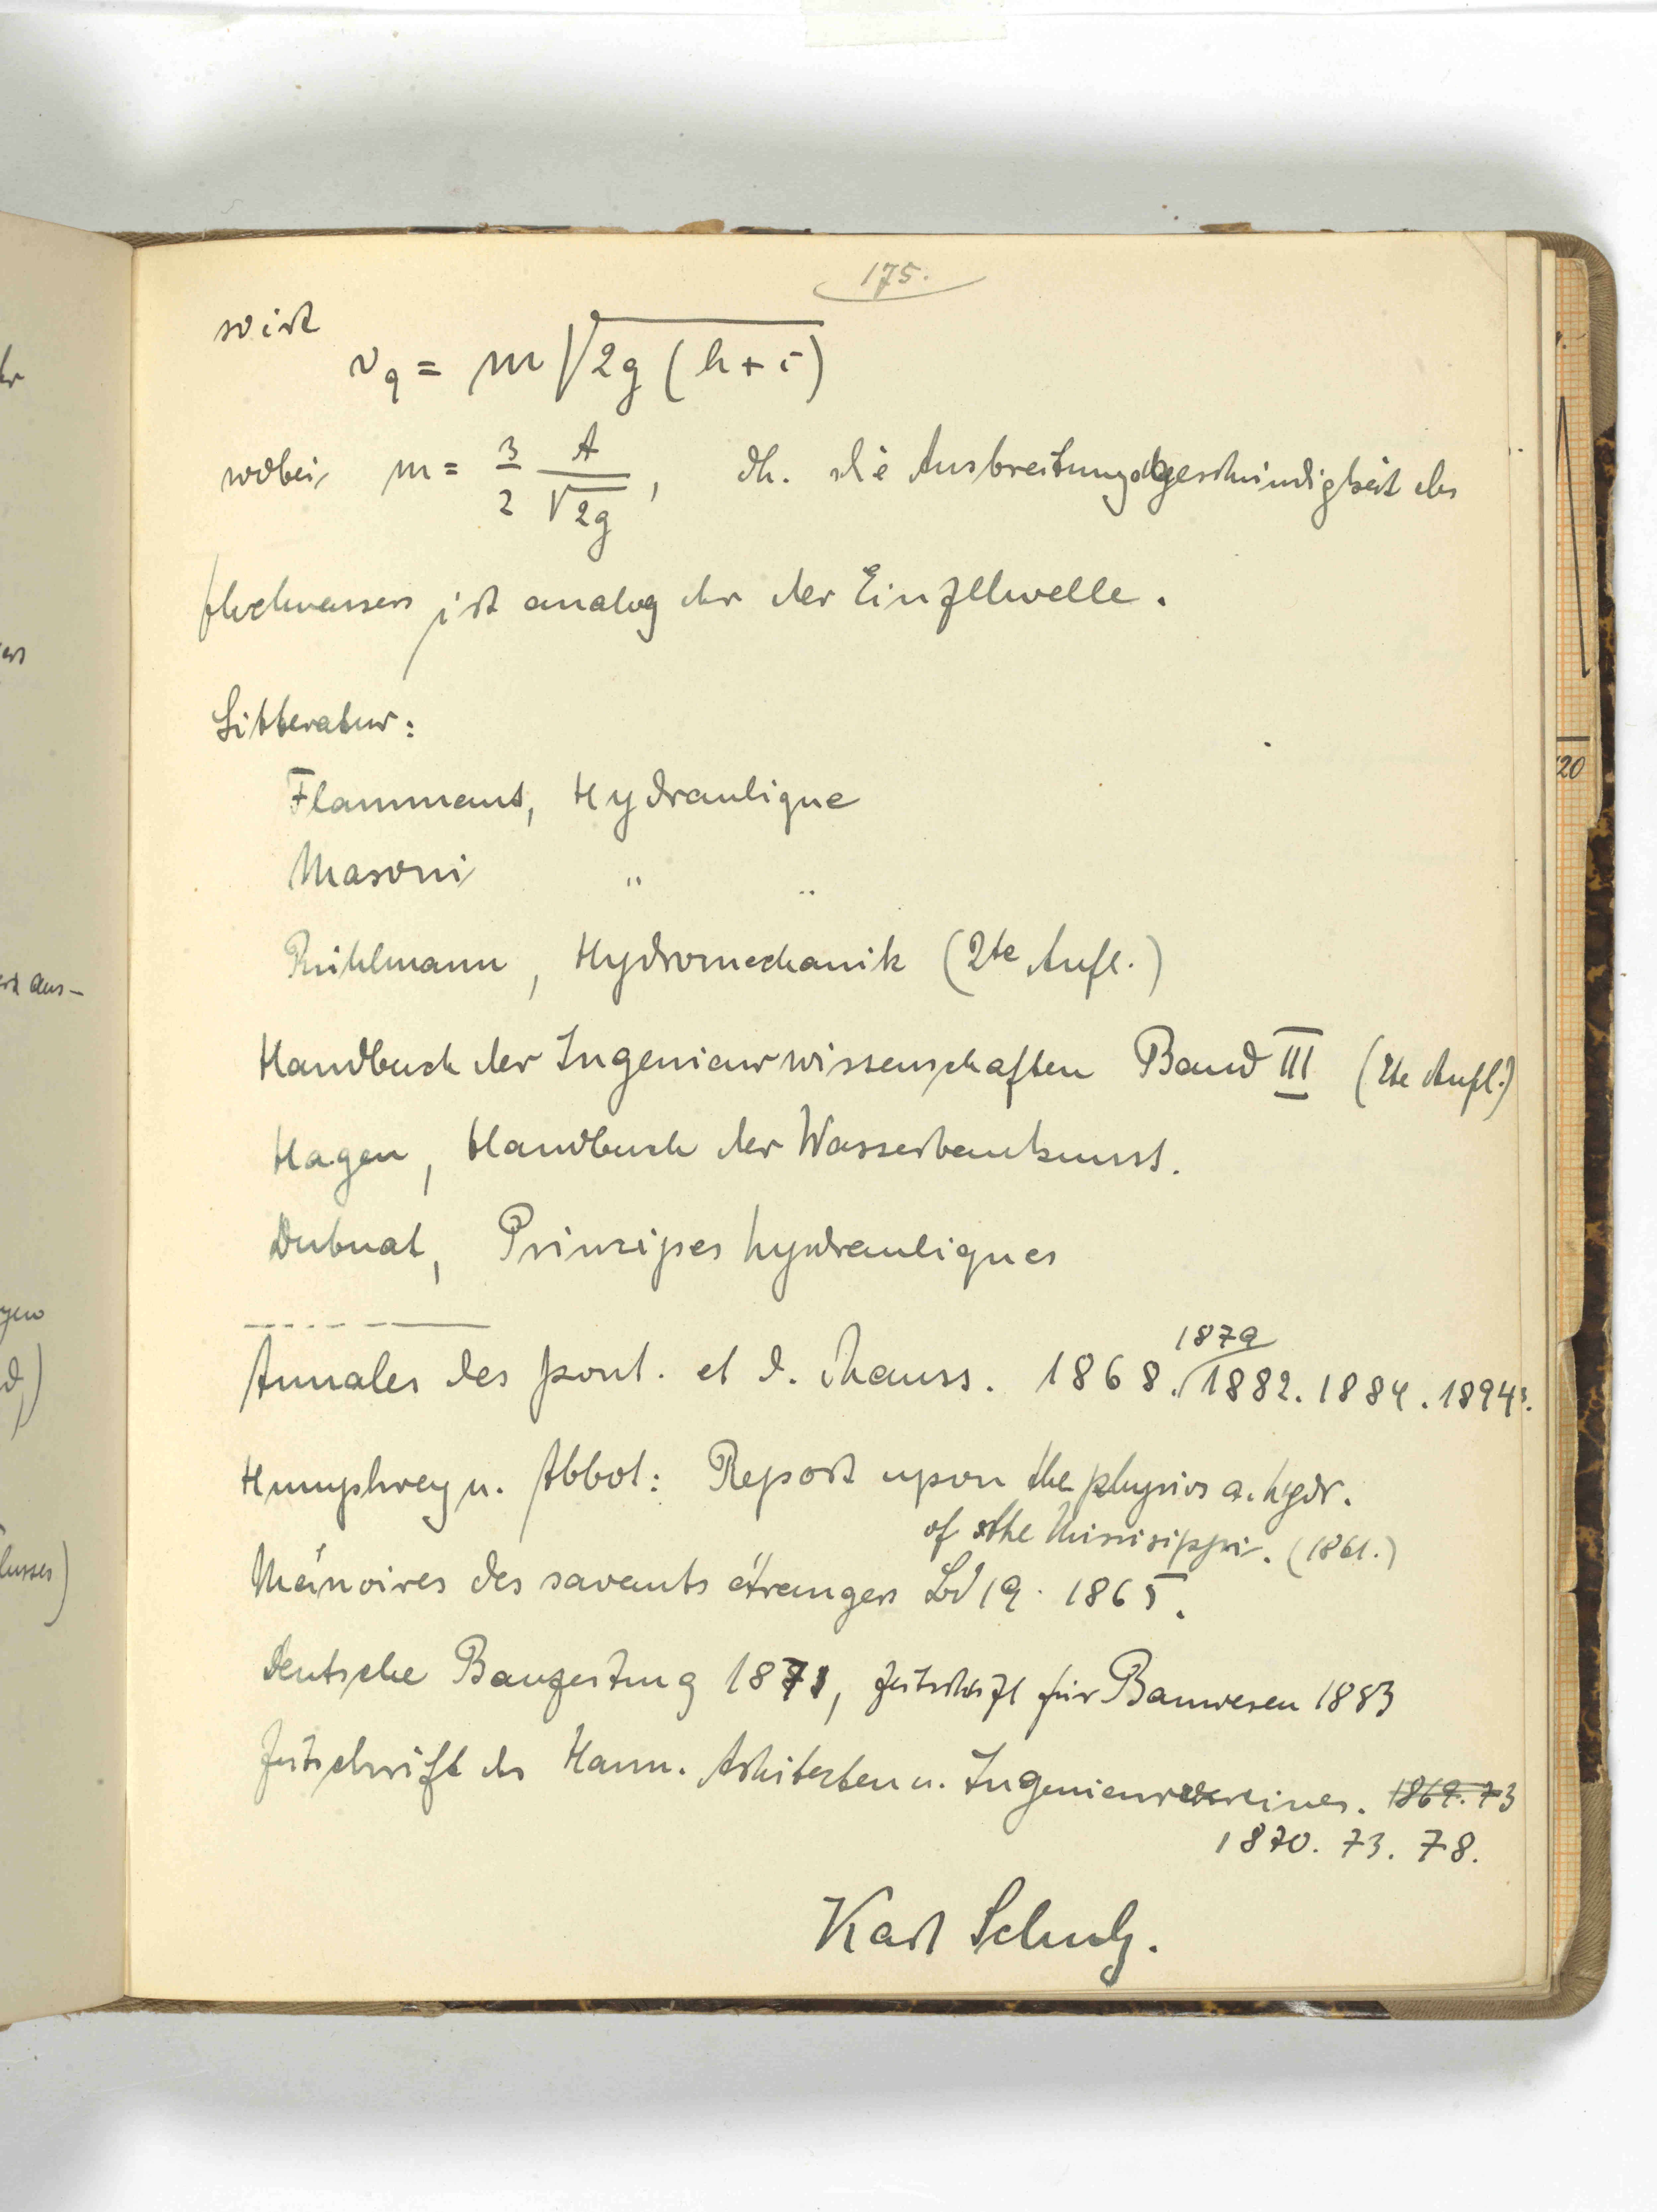 175.
so ist
v_q = m √2g (h + i)
wobei m = 3/2 A/√2g, dh. die Ausbreitungsgeschwindigkeit des
Hochwassers ist analog der der Einzellwelle.
Litteratur:
Flammant, Hydraulique
Masoni " "
Rühlmann, Hydromechanik (2te Aufl.)
Handbuch der Ingenieurwissenschaften Band III (2te Aufl.)
Hagen, Handbuch der Wasserbaukunst.
Dubuat, Prinzipes hydrauliques
1879
Annales des pont. et d. chauss. 1868. 1882. 1884. 1894³.
Humphrey u. Abbot: Report upon the physics a. hydr.
of the Missisippi. (1861.)
Mémoires des savants étrangers Bd 19. 1865.
Deutsche Bauzeitung 1871, Zeitschrift für Bauwesen 1883
Zeitschrift des Hann. Arhitekten u. Ingenieurvereines. 1869. 73
1870. 73. 78.
Karl Schulz.
aus-
20